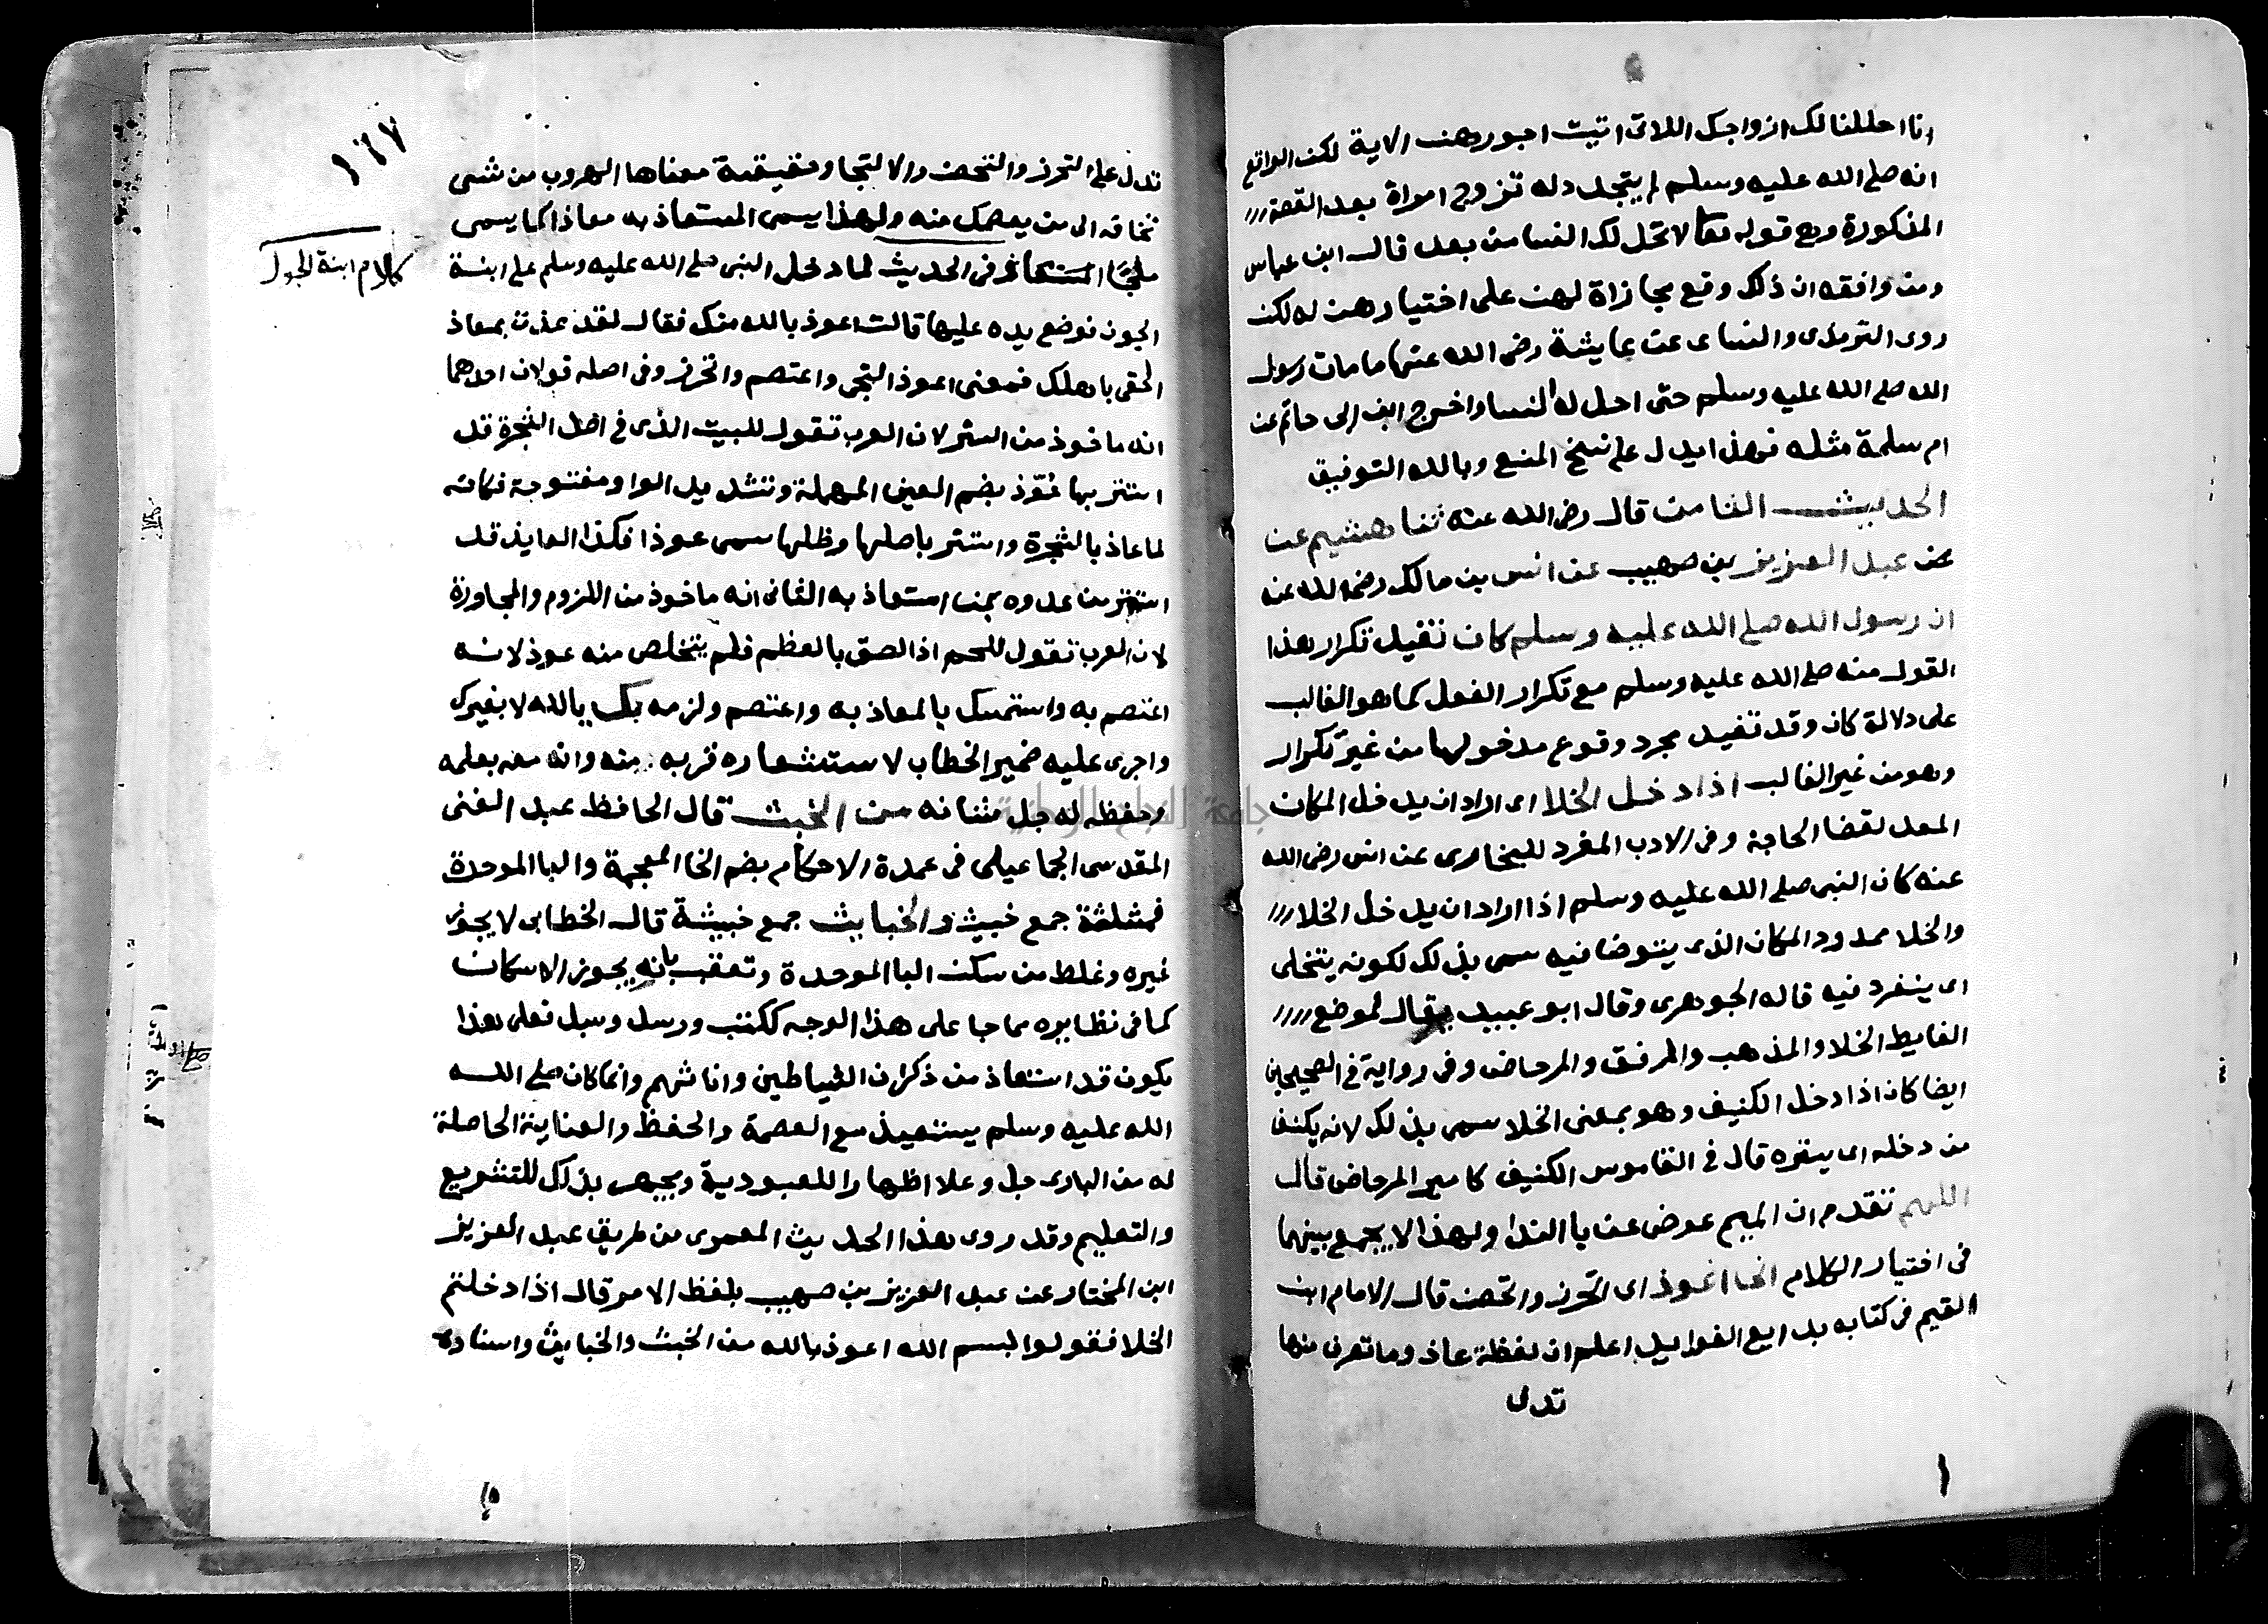 انا احللنا لك ازواجك اللاتى اتيت اجورهن الاية لكن الواقع
انه صلى الله عليه وسلم لم يتجدد له تزوج امراة بعد القصة
المذكورة ومع قوله تعا لا تحل لك النسا من بعد قال ابن عباس
ومن وافقه ان ذلك وقع مجازاة لهن على اختيارهن له لكن
روى الترمذى والنساى عن عايشة رضى الله عنها ما مات رسول
الله صلى الله عليه وسلم حتى احل له النسا واخرج ابن ابى حاتم عن
ام سلمة مثله فهذا يدل على نسخ المنع وبالله التوفيق
الحديث الثامن قال رضى الله عنه ثنا هشيم عن
عن عبد العزيز بن صهيب عن انس بن مالك رضى الله عنه
ان رسول الله صلى الله عليه وسلم كان تفيد تكرار هذا
القول منه صلى الله عليه وسلم مع تكرار الفعل كما هو الغالب
على دلالة كان وقد تفيد مجرد وقوع مدخولها من غير تكرار
وهو من غير الغالب اذا دخل الخلا اى اراد ان يدخل المكان
المعد لقضا الحاجة وفى الادب المفرد للبخارى عن انس رضى الله
عنه كان النبى صلى الله عليه وسلم اذا اراد ان يدخل الخلا
والخلا ممدود المكان الذى يتوضا فيه سمى بذلك لكونه يتخلى
اى ينفرد فيه قاله الجوهرى وقال ابو عبيد يقال لموضع
الغايط الخلا والمذهب والمرفق والمرحاض وفى رواية فى الصحيحين
ايضا كان اذا دخل الكنيف وهو بمعنى الخلا سمى بذلك لانه يكنف
من دخله اى يستره قال فى القاموس الكنيف كامير المرحاض قال
اللهم تقدم ان الميم عوض عن يا الندا ولهذا لا يجمع بينهما
فى اختيار الكلام انى اعوذ اى اتحرز واتحصن قال الامام ابن
القيم فى كتابه بدايع الفوايد اعلم ان لفظة عاذ وما تصرف منها
تدل
١٦٧
تدل على التحرز والتحصن والالتجا وحقيقة معناها الهروب من شى
تخافه الى من يعصمك منه ولهذا يسمى المستعاذ به معاذا كما يسمى
ملجًا فى الحديث لما دخل النبى صلى الله عليه وسلم على ابنة
كلام ابنة الجون
الجون فوضع يده عليها قالت اعوذ بالله منك فقال لقد عذت بمعاذ
الحقى باهلك فمعنى اعوذ التجى واعتصم واتحرز وفى اصله قولان احدهما
انه ماخوذ من الستر لان العرب تقول للبيت الذى فى اصل الشجرة قد
استتر بها عُوّذ بضم العين المهملة وتشديد الواو مفتوحة فكانه
لما عاذ بالشجرة واستتر باصلها وظلها سمى عوذا فكذا العايذ قد
استتر من عدوه بمن استعاذ به الثانى انه ماخوذ من اللزوم والمجاورة
لان العرب تقول للحم اذا لصق بالعظم فلم يتخلص منه عوذ لانه
اعتصم به واستمسك بالمعاذ به واعتصم ولزمه بك يالله لا بغيرك
واجرى عليه ضمير الخطاب لاستشعاره قربه منه وانه معه بعلمه
وحفظه له جل شانه من الخبث قال الحافظ عبد الغنى
المقدسى الجماعيلى فى عمدة الاحكام بضم الخا المعجمة والبا الموحدة
فمثلثة جمع خبيث والخبايث جمع خبيثة قال الخطابى لا يجوز
غيره وغلط من سكن البا الموحدة وتعقب بانه يجوز الاسكان
كما فى نظايره مما جا على هذا الوجه ككتب ورسل وسبل فعلى هذا
يكون قد استعاذ من ذكران الشياطين واناثهم وانما كان صلى الله
الله عليه وسلم يستعيذ مع العصمة والحفظ والعناية الحاصلة
له من البارى جل وعلا اظهارا للعبودية ويجهر بذلك للتشريع
والتعليم وقد روى هذا الحديث المعمرى من طريق عبد العزيز
ابن المختار عن عبد العزيز بن صهيب بلفظ الامر قال اذا دخلتم
الخلا فقولوا بسم الله اعوذ بالله من الخبث والخبايث واسناده
جامعة النجاح الوطنية